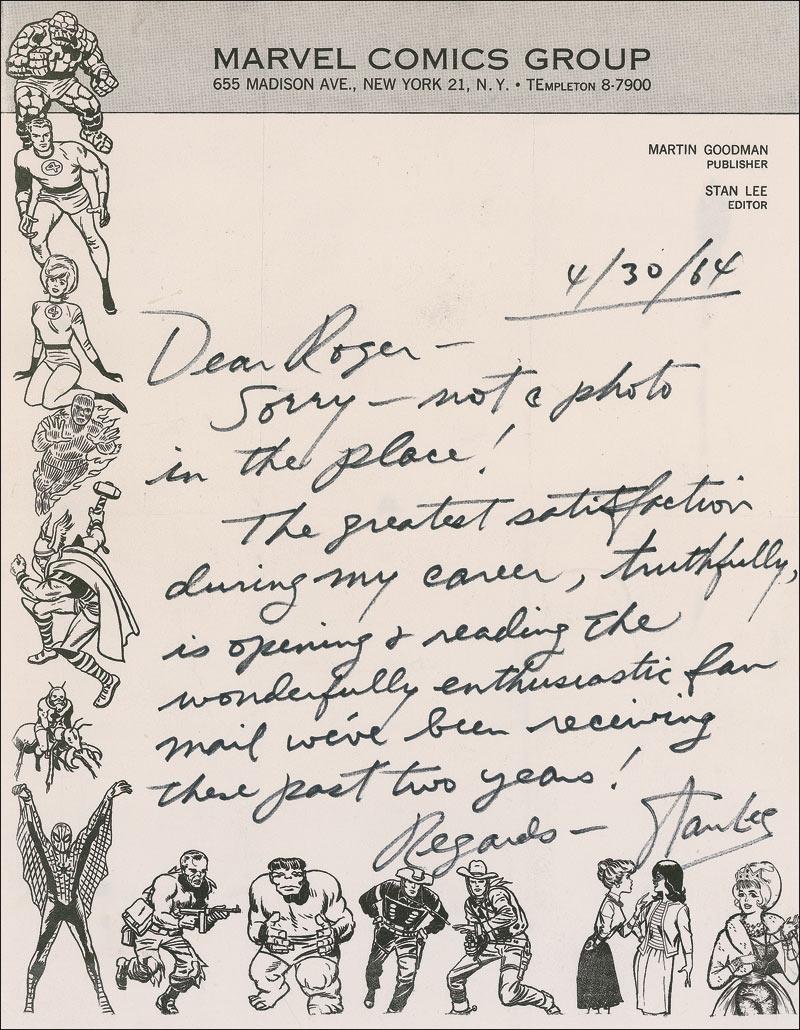 MARVEL COMICS GROUP
655 MADISON AVE., NEW YORK 21, N.Y. • TEMPLETON 8-7900
MARTIN GOODMAN
PUBLISHER
STAN LEE
EDITOR
4/30/64
Dear Roger –
Sorry – not a photo
in the place!
The greatest satisfaction
during my career, truthfully,
is opening & reading the
wonderfully enthusiastic fan
mail we've been receiving
these past two years!
Regards – Stan Lee
4
4